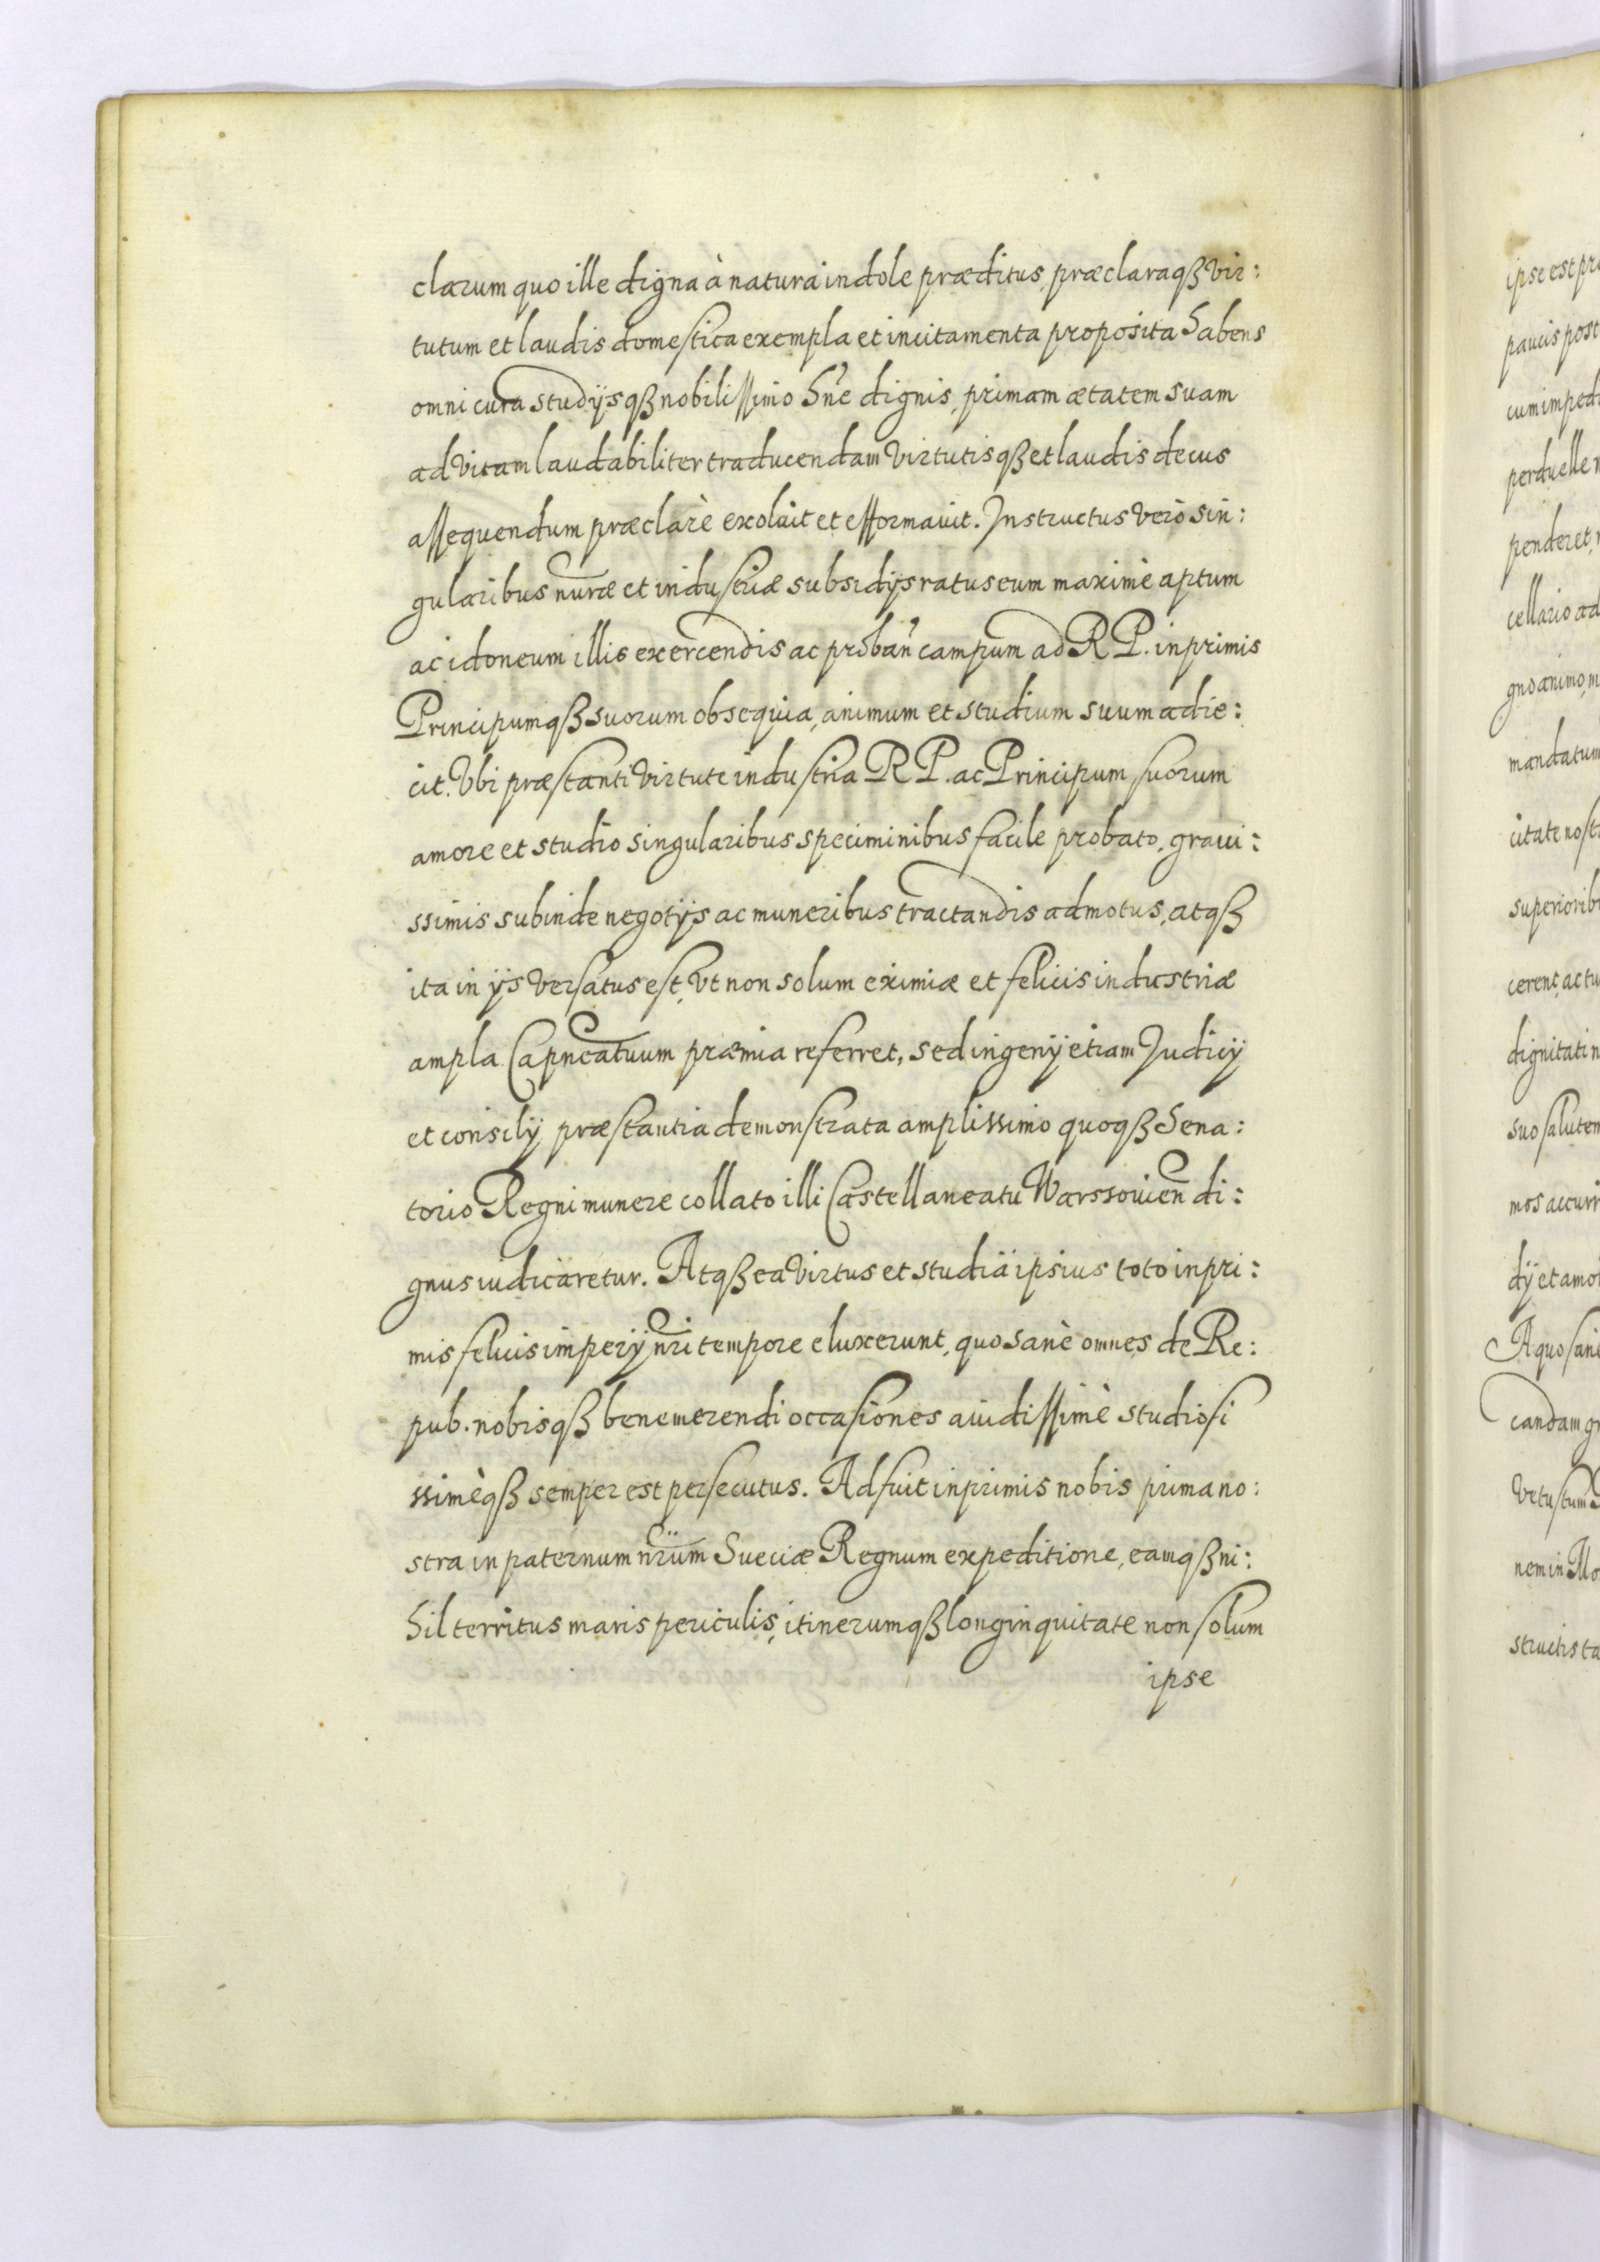 clarum quo ille digna à natura indole præditus, præclaraqꝫ vir:
tutum et laudis domestica exempla et incitamenta proposita habens
omni cura studÿsqꝫ nobilissimo hñe dignis, primam ætatem suam
ad vitam laudabiliter traducendam virtutisqꝫ et laudis decus
assequendum præclarè excoluit et efformavit. Instructus verò sin:
gularibus nuræ et industriæ subsidÿs ratus eum maximè aptum
ac idoneum illis exercendis ac proban campum ad R P. inprimis
Principumqꝫ suorum obsequia, animum et studium suum adie:
cit. Vbi præstanti virtute industria R P. ac Principum suorum
amore et studio singularibus speciminibus facile probato, graui:
ssimis subinde negotÿs ac muneribus tractandis admotus, atqꝫ
ita in ÿs versatus est, vt non solum eximiæ et felicis industriæ
ampla Capneatuum præmia referret, sed ingenÿ etiam Judicÿ
et consilÿ præstantia demonstrata amplissimo quoqꝫ Sena:
torio Regni munere collato illi Castellaneatu Warssouien di:
gnus iudicaretur. Atqꝫ ea virtus et studia ipsius toto inpri:
mis felicis imperÿ nri tempore eluxerunt, quo sanè omnes de Re:
pub. nobisqꝫ benemerendi occasiones auidissimè studiosi
ssimèqꝫ semper est persecutus. Adfuit inprimis nobis prima no:
stra in paternum nrum Sueciæ Regnum expeditione, eamqꝫ ni:
hil territus maris periculis, itinerumqꝫ longinquitate non solum
ipse
ipse est
paucis post
cum
penderet,
cellario ad
gno animo,
mandatum
superiorib
dignitati
suo salutem
mos
dÿ et
A quo
candam
structis